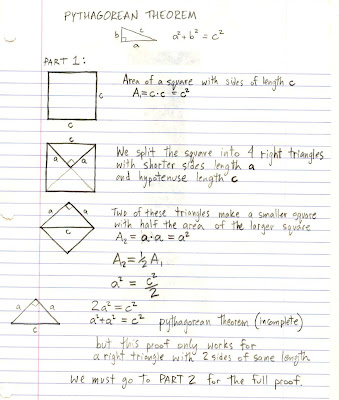 PYTHAGOREAN THEOREM
b c a a²+b² = c²
PART 1:
Area of a square with sides of length c
A₁= c·c = c²
c
c
We split the square into 4 right triangles
with shorter sides length a
and hypotenuse length c
a a
c
Two of these triangles make a smaller square
with half the area of the larger square
A₂ = a·a = a²
a a
A₂= ½ A₁
a² = c²/2
2a² = c²
a²+a² = c² pythagorean theorem (incomplete)
a a
c
but this proof only works for
a right triangle with 2 sides of same length.
We must go to PART 2 for the full proof.